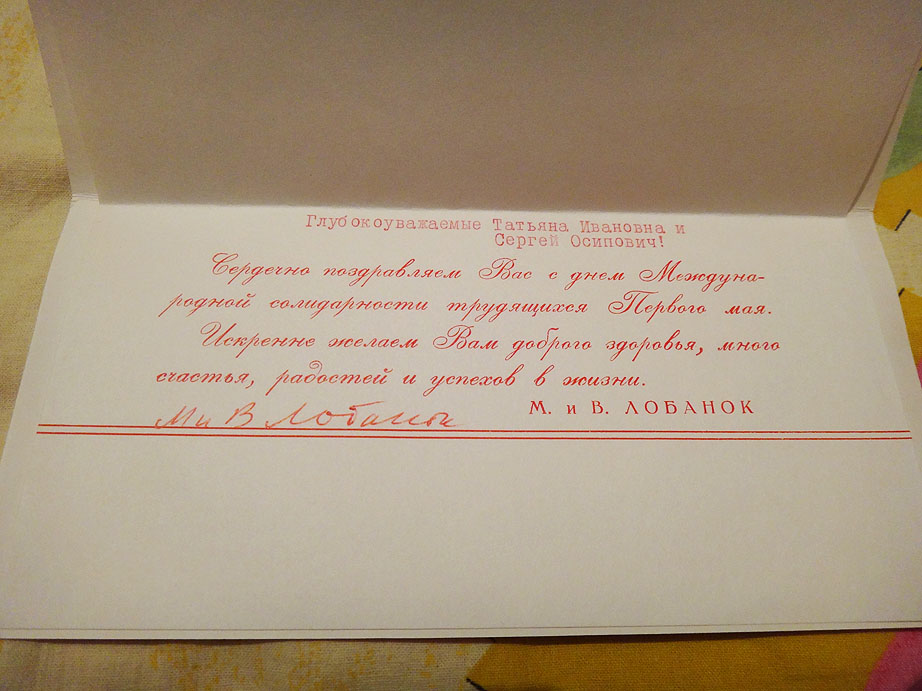 Глубокоуважаемые Татьяна Ивановна и
Сергей Осипович!
Сердечно поздравляем Вас с днем Междуна-
родной солидарности трудящихся Первого мая.
Искренне желаем Вам доброго здоровья, много
счастья, радостей и успехов в жизни.
М. и В. ЛОБАНОК
М и В Лобанок